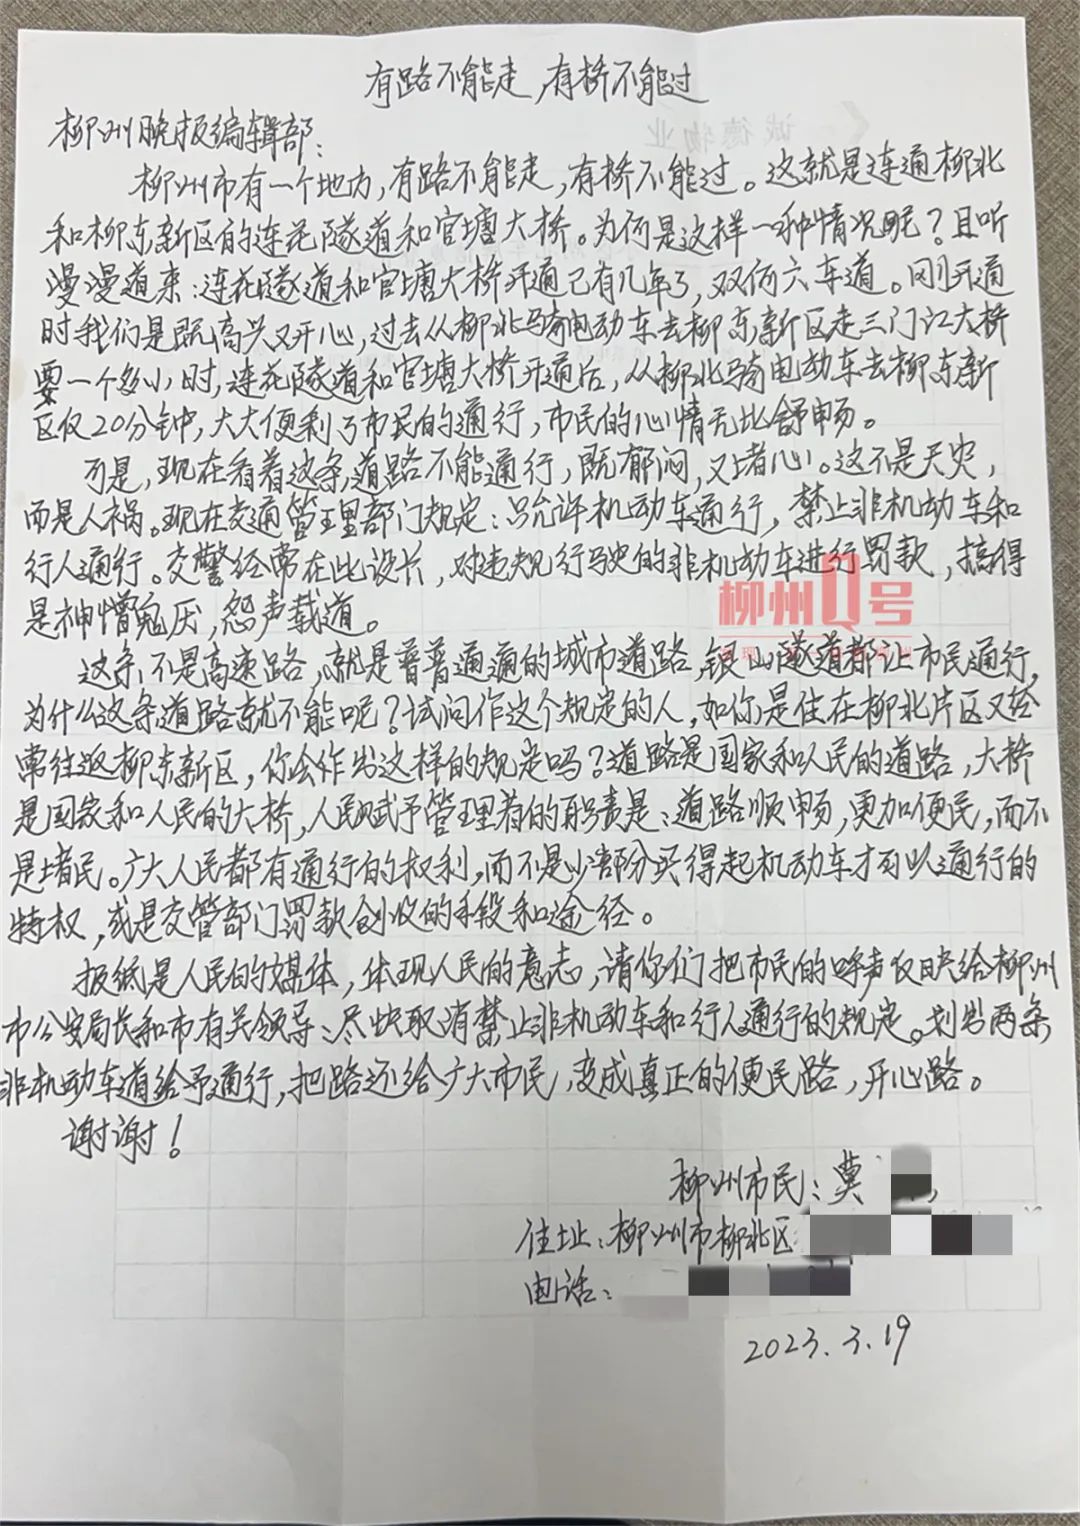 有路不能走,有桥不能过
诚德物业
柳州晚报编辑部:
柳州市有一个地方,有路不能走,有桥不能过。这就是连通柳北
和柳东新区的连花隧道和官塘大桥。为何是这样一种情况呢?且听
漫漫道来:连花隧道和官塘大桥开通已有几年了,双向六车道。刚开通
时我们是既高兴又开心,过去从柳北骑电动车去柳东新区走三门江大桥
要一个多小时,连花隧道和官塘大桥开通后,从柳北骑电动车去柳东新
区仅20分钟,大大便利了市民的通行,市民的心情无比舒畅。
可是,现在看着这条道路不能通行,既郁闷,又堵心。这不是天灾,
而是人祸。现在交通管理部门规定:只允许机动车通行,禁止非机动车和
行人通行。交警经常在此设卡,对违规行驶的非机动车进行罚款,搞得
是神憎鬼厌,怨声载道。
柳州Q号
这条不是高速路,就是普普通通的城市道路,银山隧道都让市民通行,
为什么这条道路就不能呢?试问作这个规定的人,如你是住在柳北片区又经
常往返柳东新区,你会作出这样的规定吗?道路是国家和人民的道路,大桥
是国家和人民的大桥,人民赋予管理着的职责是:道路顺畅,更加便民,而不
是堵民。广大人民都有通行的权利,而不是少部分买得起机动车才可以通行的
特权,或是交管部门罚款创收的手段和途径。
报纸是人民的媒体,体现人民的意志,请你们把市民的呼声反映给柳州
市公安局长和市有关领导:尽快取消禁止非机动车和行人通行的规定。划出两条
非机动车道给予通行,把路还给广大市民,变成真正的便民路,开心路。
谢谢!
柳州市民:莫
住址:柳州市柳北区
电话:
2023.3.19